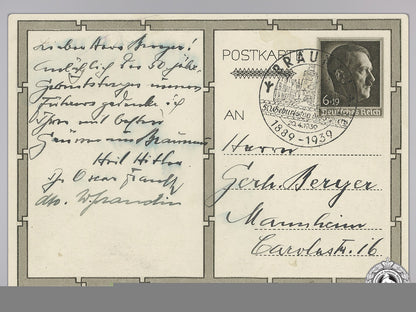 Lieber Herr Berger!
Anläßlich des 50 jähr.
Geburtstages unseres
Führers gedenke ich
Ihrer mit besten
Grüßen aus Braunau
Heil Hitler
Oscar
POSTKARTE
AN
BRAUNAU
20.4.1939
1889-1939
6+19
Deutsches Reich
Herrn
Gerh. Berger
Mannheim
Carolastr. 16